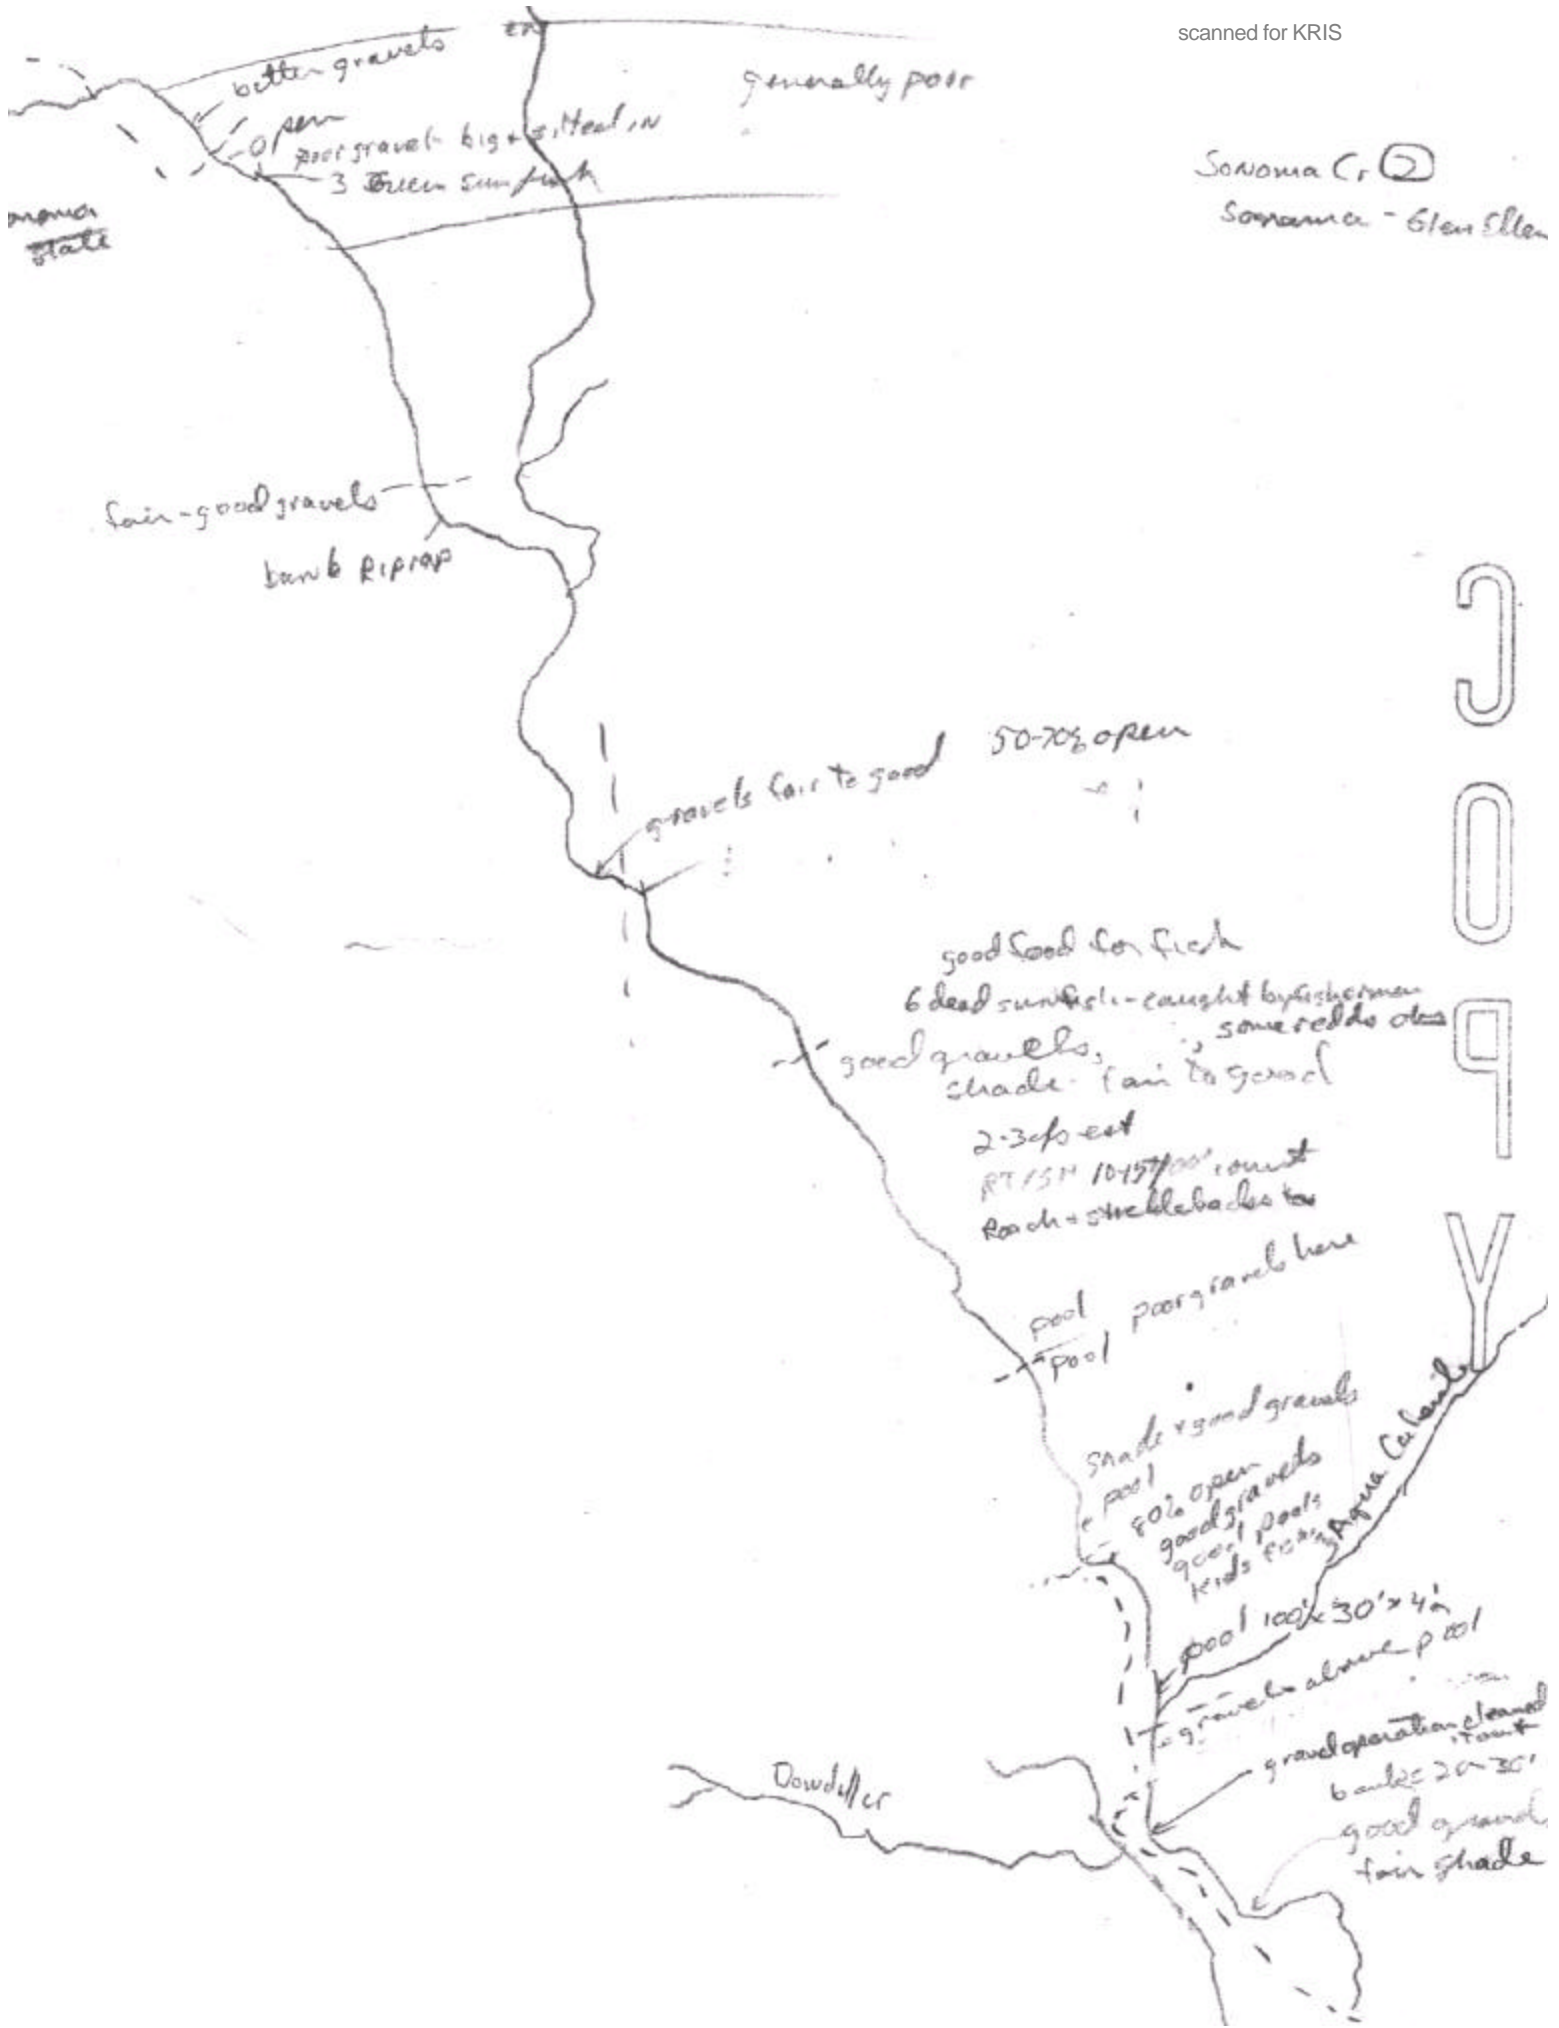 scanned for KRIS
better gravels
generally poor
open
poor gravel big + silted in
3 Green sunfish
Sonoma Cr 2
Sonoma - Glen Ellen
onoma
State
fair-good gravels
bank Riprap
COPY
gravels fair to good 50-70% open
good food for fish
6 dead sunfish - caught by fishermen
good gravels, some redds obs
shade fair to good
2-3 cfs est
RT/SH count
Roach + sticklebacks
pool poor gravels here
pool
shade + good gravels
pool
80% open
good gravels
good pools
Kids fishing
Agua Caliente
pool 100' x 30' x 4'
gravels above pool
gravel operation cleaned
it out
banks 20-30'
Dowdell cr
good gravel
fair shade